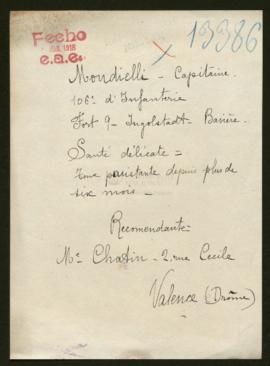 13386
Fecho
1918
e.a.e.
Mondielli - Capitaine
106e d'Infanterie
Fort 9 - Ingolstadt - Bavière
Santé délicate =
persistante depuis plus de
six mois -
Recomendante =
Me Chatin - 2, rue Cecile
Valence (Drôme)